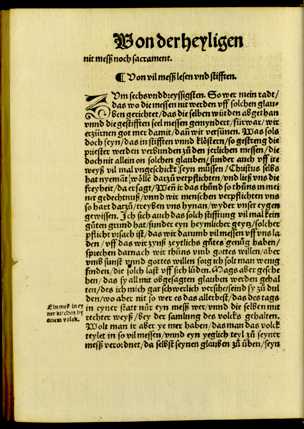 Von der heyligen
nit meß noch sacrament.
¶ Von vil meß lesen vnd stifften.
Zum sechsvnddreyssigsten. So wer mein radt/
das wo die messen nit werden vff solchen glau-
ben gericht et/das die selben würden abgethan
vnnd die gestifften seel messen gemyndert/ für war/ wir
erzürnen got mer damit/dañ wir versünen. Was sols
doch seyn/das in stifften vnnd klöstern/so gestreng die
priester werden verbünden zů den jerlichen messen/die
doch nit allein on solchen glauben/sunder auch vff ire
weyß vil mal ungeschickt seyn müssen/Christus selbs
hat nyemāt wölle darzů verpflichten/vnd ließ vns die
freyheit/da er sagt/Weñ it das thünd so thüns in mei
ner gedechtnuß/vnnd wir menschen verpflichten vns
so hart darzů/treyben vns hynan/wyder vnser eygen
gewissen. Ich sich auch das solch stifftung vil mal kein
gůten grund hat/sunder eyn heymlicher geytz/solcher
pflicht vrsach ist/das wir darumb vil messen vff vns la
den/vff das wir vnß zeytlichs gůtes genůg haben/
sprechen darnach wir thüns vmb gottes willen/aber
vmb sunst vnnd gottes willen sorg ich solt man wenig
finden/die solch last vff sich lůden. Mags aber gesche
hen/das sy all mit obgesagten glauben werden gehal
ten/des ich mich gar schwerlich versihe/seind sy zů dul
den/wo aber nit so wer es das allerbest/das des tags
in eyner statt nūr eyn meß wer/vnnd die selben mit
rechter weyß/bey der samlung des volcks gehalten.
Wolt man it aber ye mer haben/das man das volck
teylet in so vil messen/vnnd eyn yeglich teyl zů seyner
messz verordnet/da selbst seynen glauben zů üben/seyn